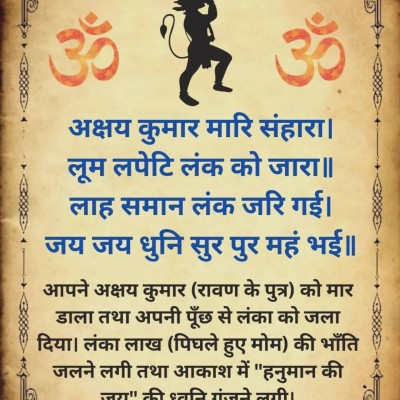 ॐ ॐ
अक्षय कुमार मारि संहारा।
लूम लपेटि लंक को जारा॥
लाह समान लंक जरि गई।
जय जय धुनि सुर पुर महं भई॥
आपने अक्षय कुमार (रावण के पुत्र) को मार
डाला तथा अपनी पूँछ से लंका को जला
दिया। लंका लाख (पिघले हुए मोम) की भाँति
जलने लगी तथा आकाश में "हनुमान की
जय" की ध्वनि गूंजने लगी।